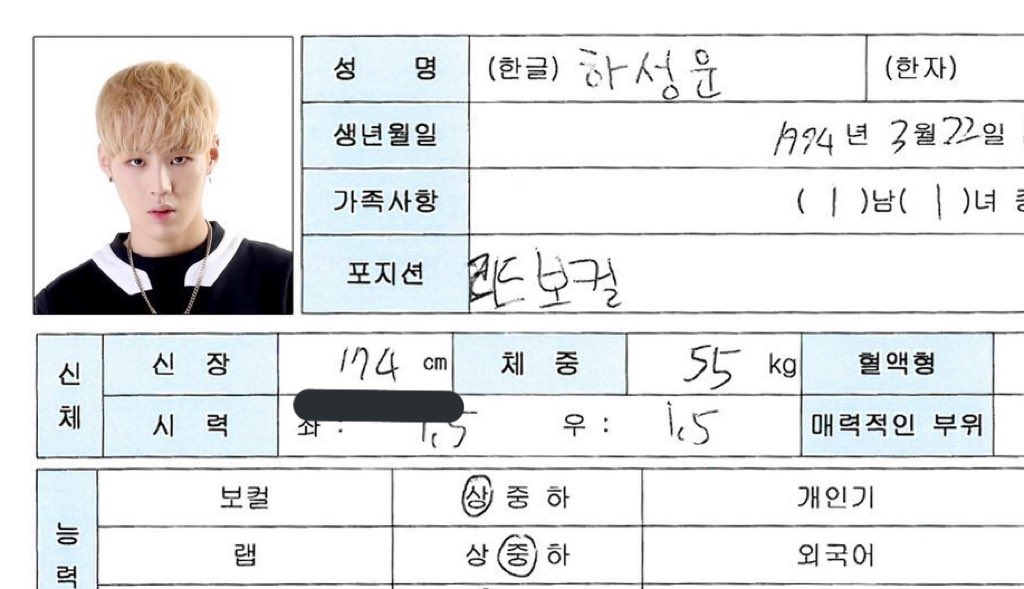 성 명 (한글) 하성운 (한자)
생년월일 1994년 3월 22일
가족사항 ( 1 )남( 1 )녀
포지션 리드보컬
신체
신 장 174 cm 체 중 55 kg 혈액형
시 력 좌 : 1.5 우 : 1.5 매력적인 부위
능력
보컬 상 중 하 개인기
랩 상 중 하 외국어